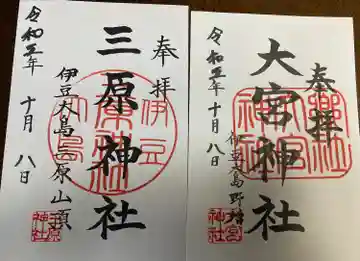 奉拝
三原神社
伊豆大島三原山頂
令和五年 十月 八日
奉拝
大宮神社
伊豆大島野増
令和五年 十月 八日